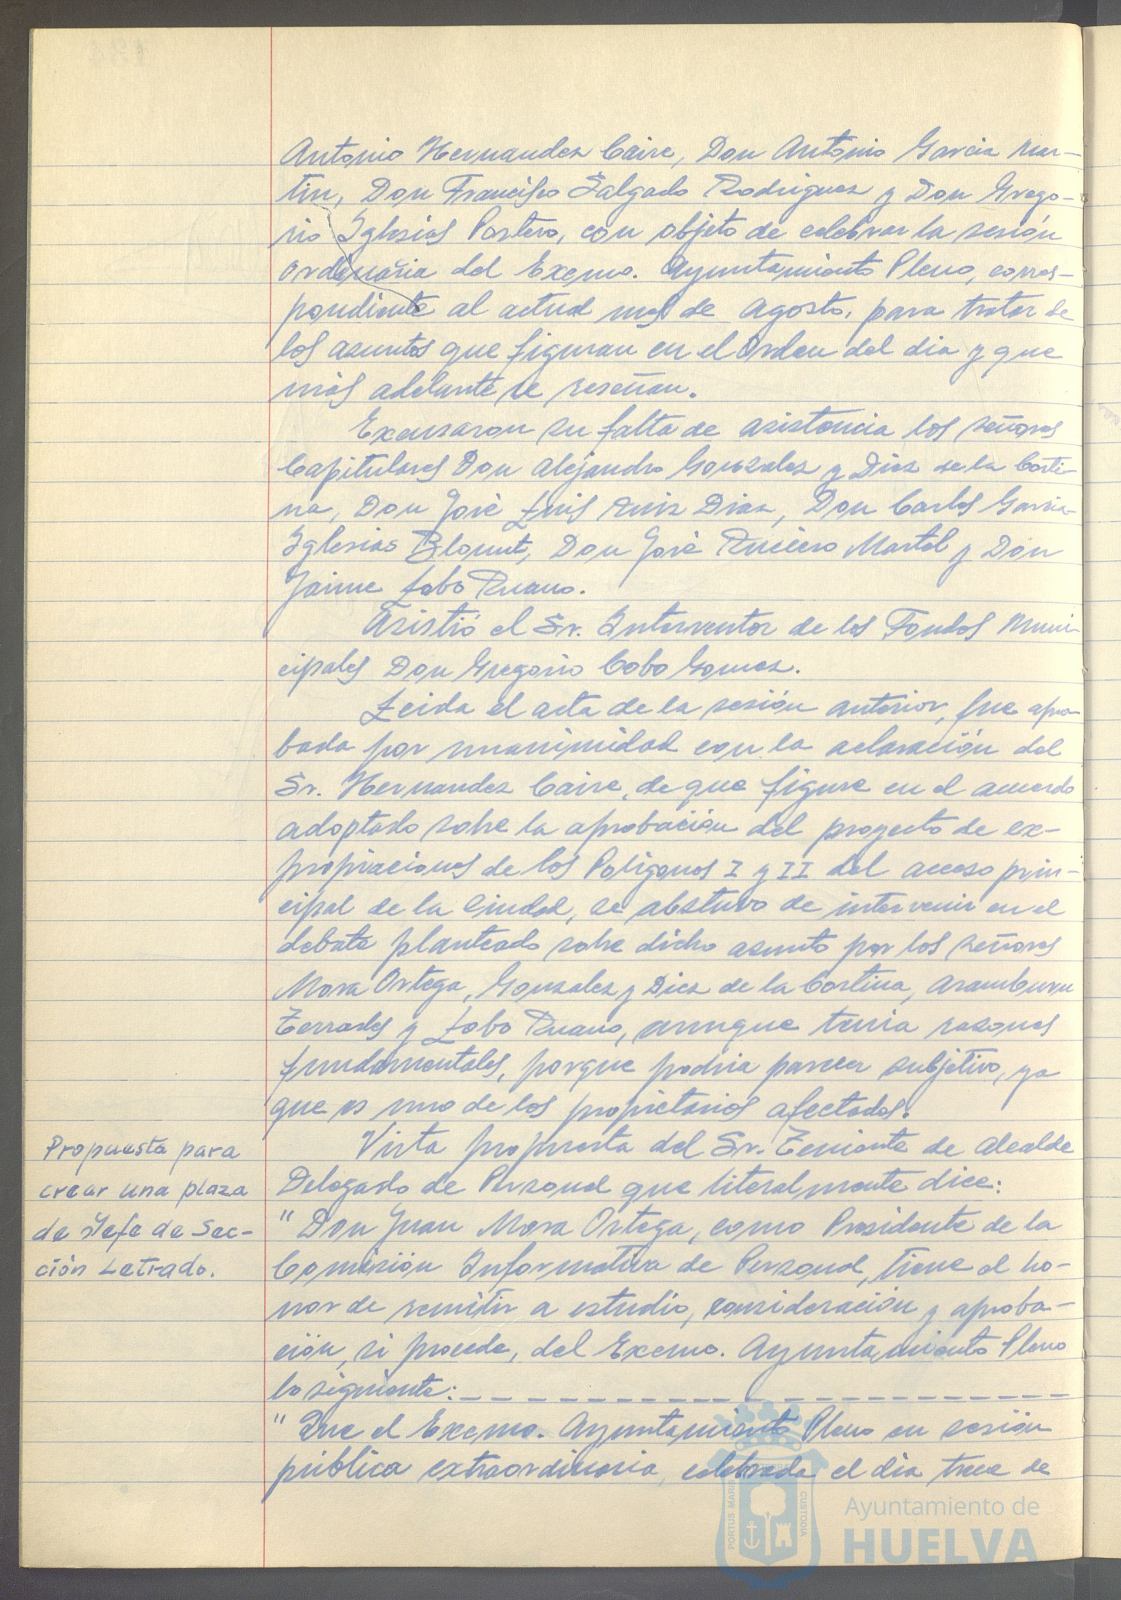 Antonio Hernandez Caire, Don Antonio Garcia Mar-
tin, Don Francisco Salgado Rodriguez y Don Grego-
rio Iglesias Postero, con objeto de celebrar la sesión
ordinaria del Excmo. Ayuntamiento Pleno, corres-
pondiente al actual mes de Agosto, para tratar de
los asuntos que figuran en el Orden del dia y que
más adelante se reseñan.
Excusaron su falta de asistencia los señores
Capitulares Don Alejandro Gonzalez y Diez de la Corti-
na, Don José Luis Ruiz Diaz, Don Carlos Garcia-
Iglesias Blount, Don José Ruciero Martel y Don
Jaime Lobo Ruano.
Asistió el Sr. Interventor de los Fondos Muni-
cipales Don Gregorio Cobo Gomez.
Leida el acta de la sesión anterior, fue apro-
bada por unanimidad con la aclaración del
Sr. Hernandez Caire, de que figure en el acuerdo
adoptado sobre la aprobación del proyecto de ex-
propiaciones de los Poligonos I y II del acceso prin-
cipal de la Ciudad, se abstuvo de intervenir en el
debate planteado sobre dicho asunto por los señores
Mora Ortega, Gonzalez y Diez de la Cortina, Aramburu
Terrades y Lobo Ruano, aunque tenia razones
fundamentales, porque podria parecer subjetivo, ya
que es uno de los propietarios afectados.
Propuesta para
crear una plaza
de Jefe de Sec-
ción Letrado.
Vista propuesta del Sr. Teniente de Alcalde
Delegado de Personal que literalmente dice:
" Don Juan Mora Ortega, como Presidente de la
Comisión Informativa de Personal, tiene el ho-
nor de remitir a estudio, consideración y aproba-
ción, si procede, del Excmo. Ayuntamiento Pleno
lo siguiente:
" Que el Excmo. Ayuntamiento Pleno en sesión
pública extraordinaria, celebrada el dia trece de
PORTUS MARIS
CUSTODIA
Ayuntamiento de
HUELVA